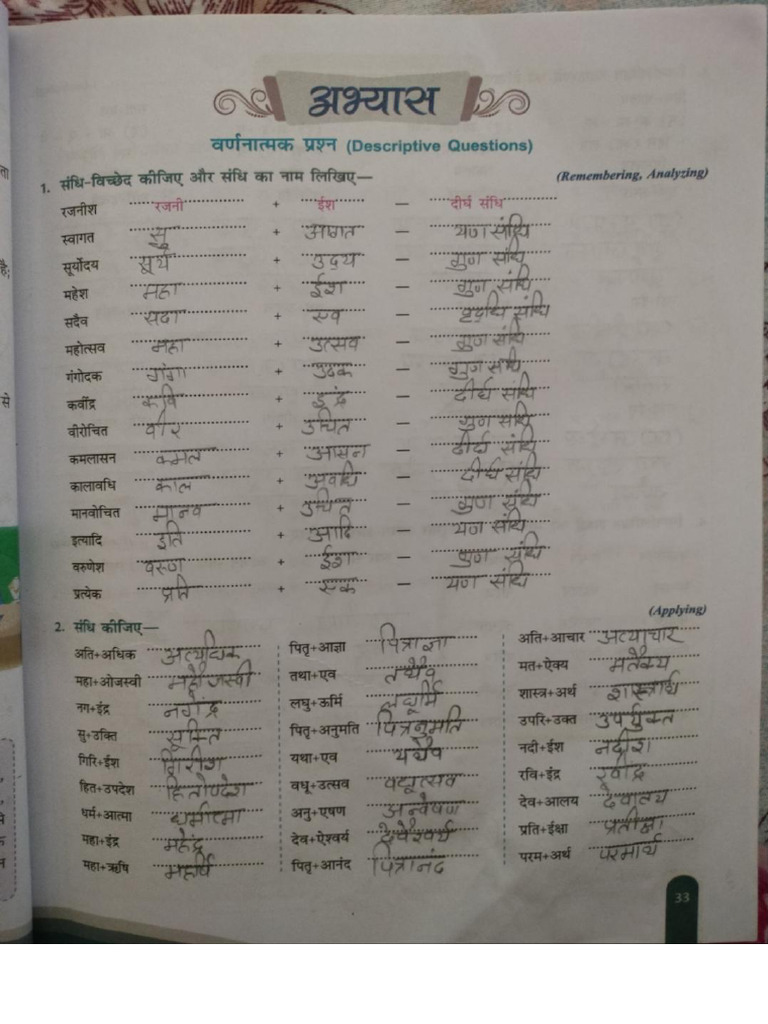 अभ्यास
वर्णनात्मक प्रश्न (Descriptive Questions)
1. संधि-विच्छेद कीजिए और संधि का नाम लिखिए— (Remembering, Analyzing)
रजनीश रजनी + ईश — दीर्घ संधि
स्वागत सु + आगत — यण संधि
सूर्योदय सूर्य + उदय — गुण संधि
महेश महा + ईश — गुण संधि
सदैव सदा + एव — वृद्धि संधि
महोत्सव महा + उत्सव — गुण संधि
गंगोदक गंगा + उदक — गुण संधि
कवींद्र कवि + इंद्र — दीर्घ संधि
वीरोचित वीर + उचित — गुण संधि
कमलासन कमल + आसन — दीर्घ संधि
कालावधि काल + अवधि — दीर्घ संधि
मानवोचित मानव + उचित — गुण संधि
इत्यादि इति + आदि — यण संधि
वरुणेश वरुण + ईश — गुण संधि
प्रत्येक प्रति + एक — यण संधि
(Applying)
2. संधि कीजिए—
अति+अधिक अत्यधिक पितृ+आज्ञा पित्राज्ञा अति+आचार अत्याचार
महा+ओजस्वी महौजस्वी तथा+एव तथैव मत+ऐक्य मतैक्य
नग+इंद्र नगेंद्र लघु+ऊर्मि लघूर्मि शास्त्र+अर्थ शास्त्रार्थ
सु+उक्ति सूक्ति पितृ+अनुमति पित्रनुमति उपरि+उक्त उपर्युक्त
गिरि+ईश गिरीश यथा+एव यथैव नदी+ईश नदीश
हित+उपदेश हितोपदेश वधू+उत्सव वधूत्सव रवि+इंद्र रवींद्र
धर्म+आत्मा धर्मात्मा अनु+एषण अन्वेषण देव+आलय देवालय
महा+इंद्र महेंद्र देव+ऐश्वर्य देवैश्वर्य प्रति+ईक्षा प्रतीक्षा
महा+ऋषि महर्षि पितृ+आनंद पित्रानंद परम+अर्थ परमार्थ
33